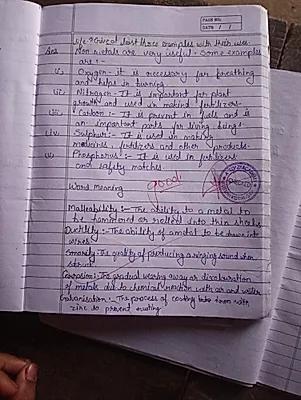 PAGE NO.
DATE / /
Q Give at least three examples with their uses.
Ans Non metals are very useful. Some examples
are :-
(i) Oxygen - it is necessary for breathing
and helps in burning.
(ii) Nitrogen - It is important for plant
growth and used in making fertilizers.
(iii) Carbon :- It is present in fuels and is
an important part for living beings.
(iv) Sulphur :- It is used in making
medicines, fertilizers and other products.
(v) Phosphorus :- It is used in fertilizers
and safety matches.
good
Word Meaning
Malleability :- The ability to a metal to
be hammered or rolled into thin sheets
Ductility :- The ability of a metal to be drawn into
wires
Sonority :- The quality of producing a ringing sound when
struck
Corrosion :- The gradual wearing away or discolouration
of metals due to chemical reaction with air and water
Galvanisation :- The process of coating iron with
zinc to prevent rusting